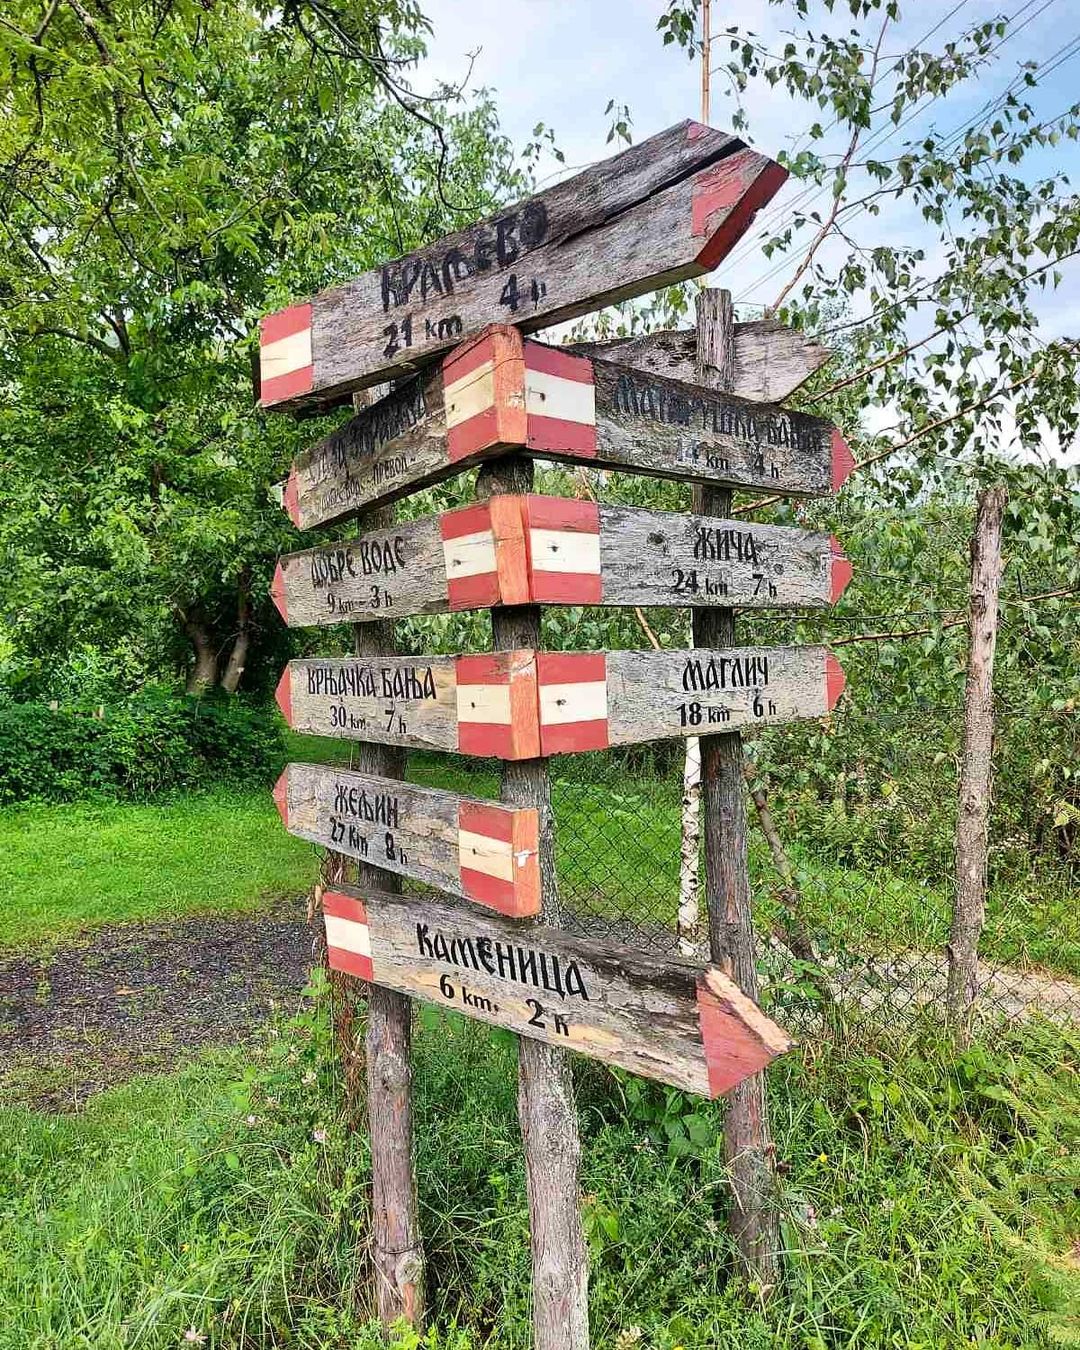 КРАЉЕВО
21 km 4 h
МАТАРУШКА БАЊА
km 4 h
ДОБРЕ ВОДЕ
9 km - 3 h
ЖИЧА
24 km 7 h
ВРЊАЧКА БАЊА
30 km 7 h
МАГЛИЧ
18 km 6 h
ЖЕЉИН
27 km 8 h
КАМЕНИЦА
6 km. 2 h